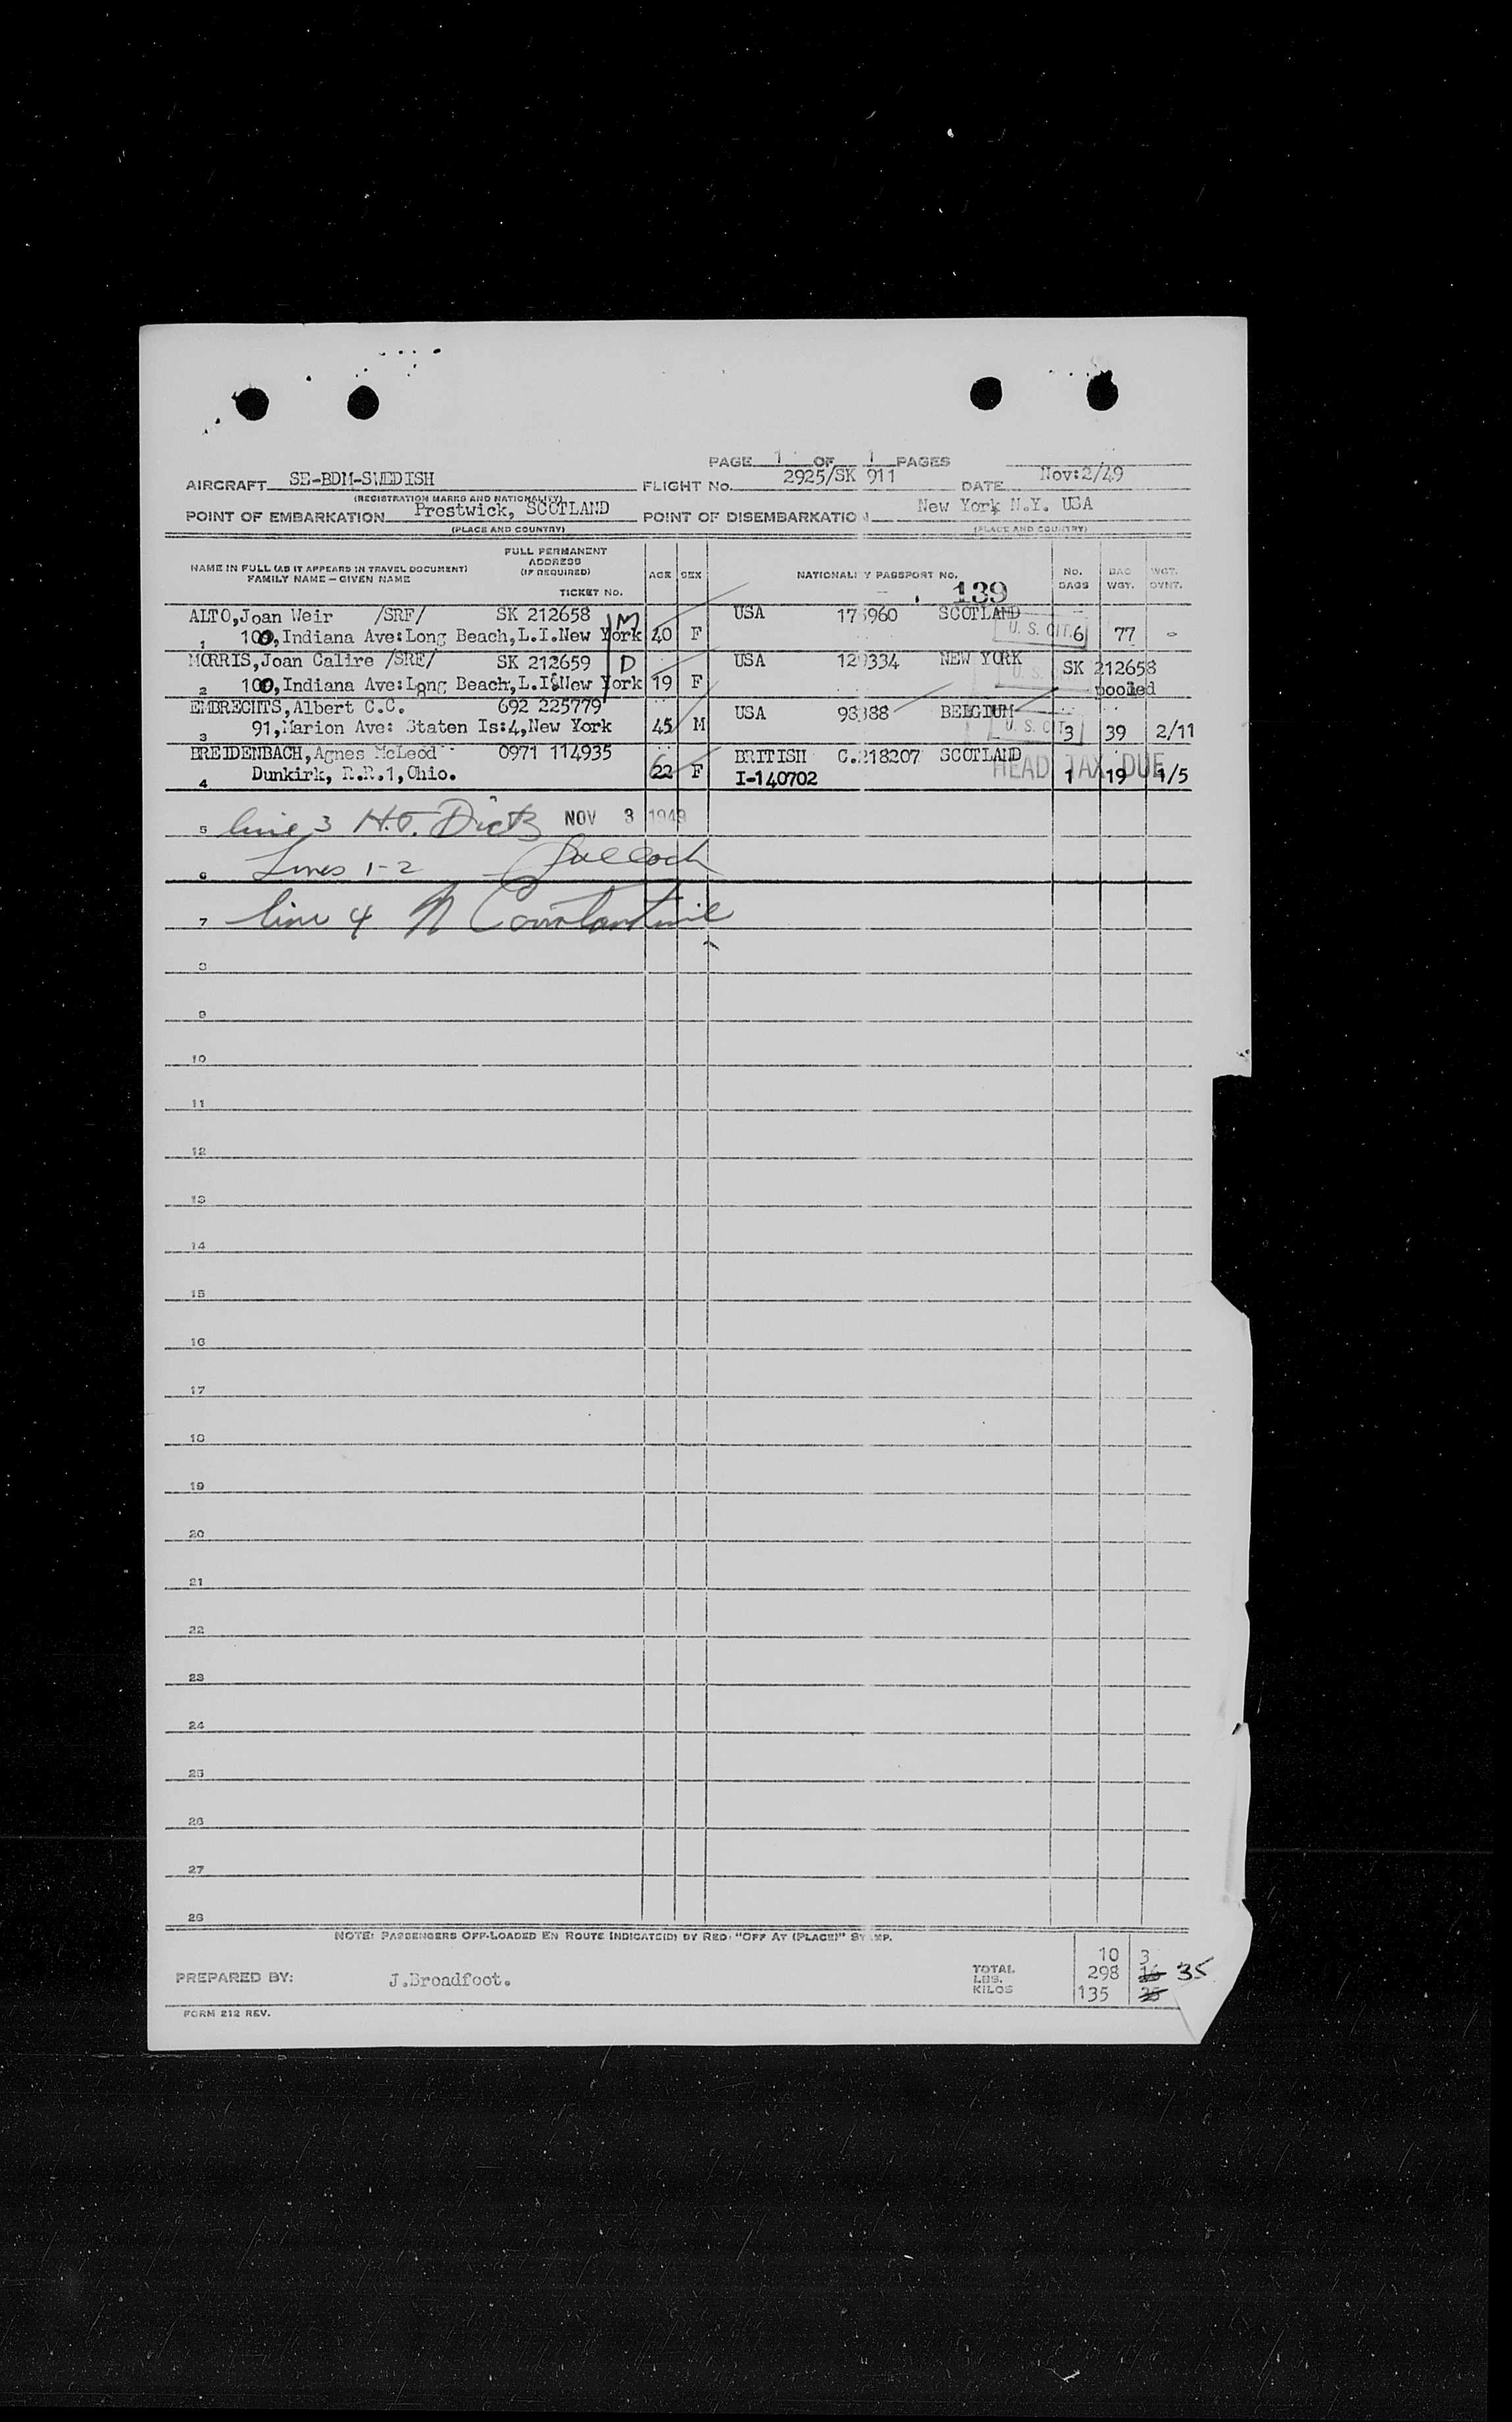 PAGE 1 OF 1 PAGES
AIRCRAFT SE-BDM-SWEDISH FLIGHT No. 2925/SK 911 DATE Nov:2/49
(REGISTRATION MARKS AND NATIONALITY)
POINT OF EMBARKATION Prestwick, SCOTLAND POINT OF DISEMBARKATION New York N.Y. USA
(PLACE AND COUNTRY) (PLACE AND COUNTRY)
NAME IN FULL (AS IT APPEARS IN TRAVEL DOCUMENT) FULL PERMANENT ADDRESS (IF REQUIRED) AGE SEX NATIONALITY PASSPORT NO. No. BAGS BAG WGT. WGT. OVWT.
FAMILY NAME – GIVEN NAME
TICKET No. 139
ALTO,Joan Weir /SRF/ SK 212658 M USA 17 960 SCOTLAND
1 100,Indiana Ave:Long Beach,L.I.New York 40 F U. S. CIT. 6 77 -
MORRIS,Joan Calire /SRF/ SK 212659 D USA 12 334 NEW YORK SK 212658
2 100,Indiana Ave:Long Beach,L.I.New York 19 F U. S. pooled
EMBRECHTS,Albert C.C. 692 225779 USA 98 88 BELGIUM
3 91,Marion Ave: Staten Is:4,New York 45 M U. S. CIT. 3 39 2/11
BREIDENBACH,Agnes McLeod 0971 114935 BRITISH C. 218207 SCOTLAND
4 Dunkirk, R.R.1,Ohio. 22 F I-140702 HEAD TAX DUE 1 19 1/5
5 line 3 H.J. Dietz NOV 3 1949
6 Lines 1-2
7 line 4 N Constantine
8
9
10
11
12
13
14
15
16
17
18
19
20
21
22
23
24
25
26
27
28
NOTE: PASSENGERS OFF-LOADED EN ROUTE INDICATE(D) BY RED "OFF AT (PLACE)" STAMP.
TOTAL 10 3
PREPARED BY: J.Broadfoot. LBS. 298 16 35
KILOS 135 35
FORM 212 REV.